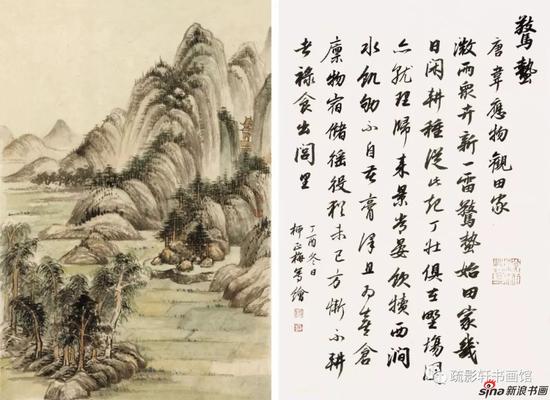 驚蟄
唐韋應物觀田家
微雨眾卉新一雷驚蟄始田家幾
日閑耕種從此起丁壯俱在野場圃
亦就理歸來景常晏飲犢西澗
水飢劬不自苦膏澤且為喜倉
廩物宿儲徭役猶未已方慚不耕
者祿食出閭里
丁酉冬日
柳正梅 繪
疏影轩书画馆
sina新浪书画